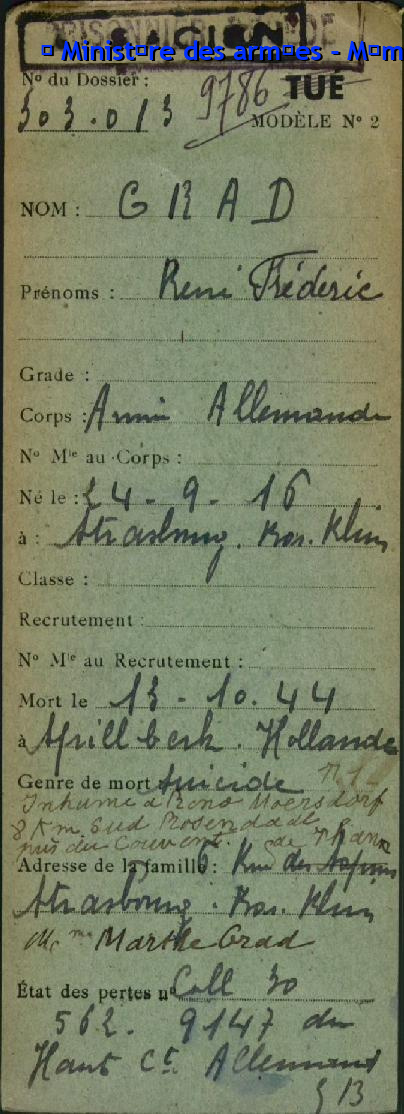 Ministère des armées - Mém
TUÉ
N° du Dossier :
303.013
9786
MODÈLE N° 2
NOM : GRAD
Prénoms : René Fréderic
Grade :
Corps : Armée Allemande
N° Mle au Corps :
Né le : 24 - 9 - 16
à : Strasbourg. Bas. Rhin
Classe :
Recrutement :
N° Mle au Recrutement :
Mort le 13 - 10. 44
à Hollande
Genre de mort suicide
Inhumé à
8 Km Sud Rosendaal
près du Couvent.
Adresse de la famille : 6 Rue des
Strasbourg. Bas. Rhin
Mme Marthe Grad
État des pertes n° Coll 30
562. 9147 du
Haut Ct. Allemand
§ 13